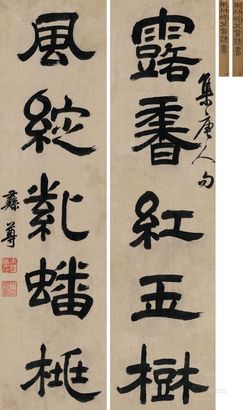 露香紅玉樹
集唐人句
風綻紫蟠桃
彝尊